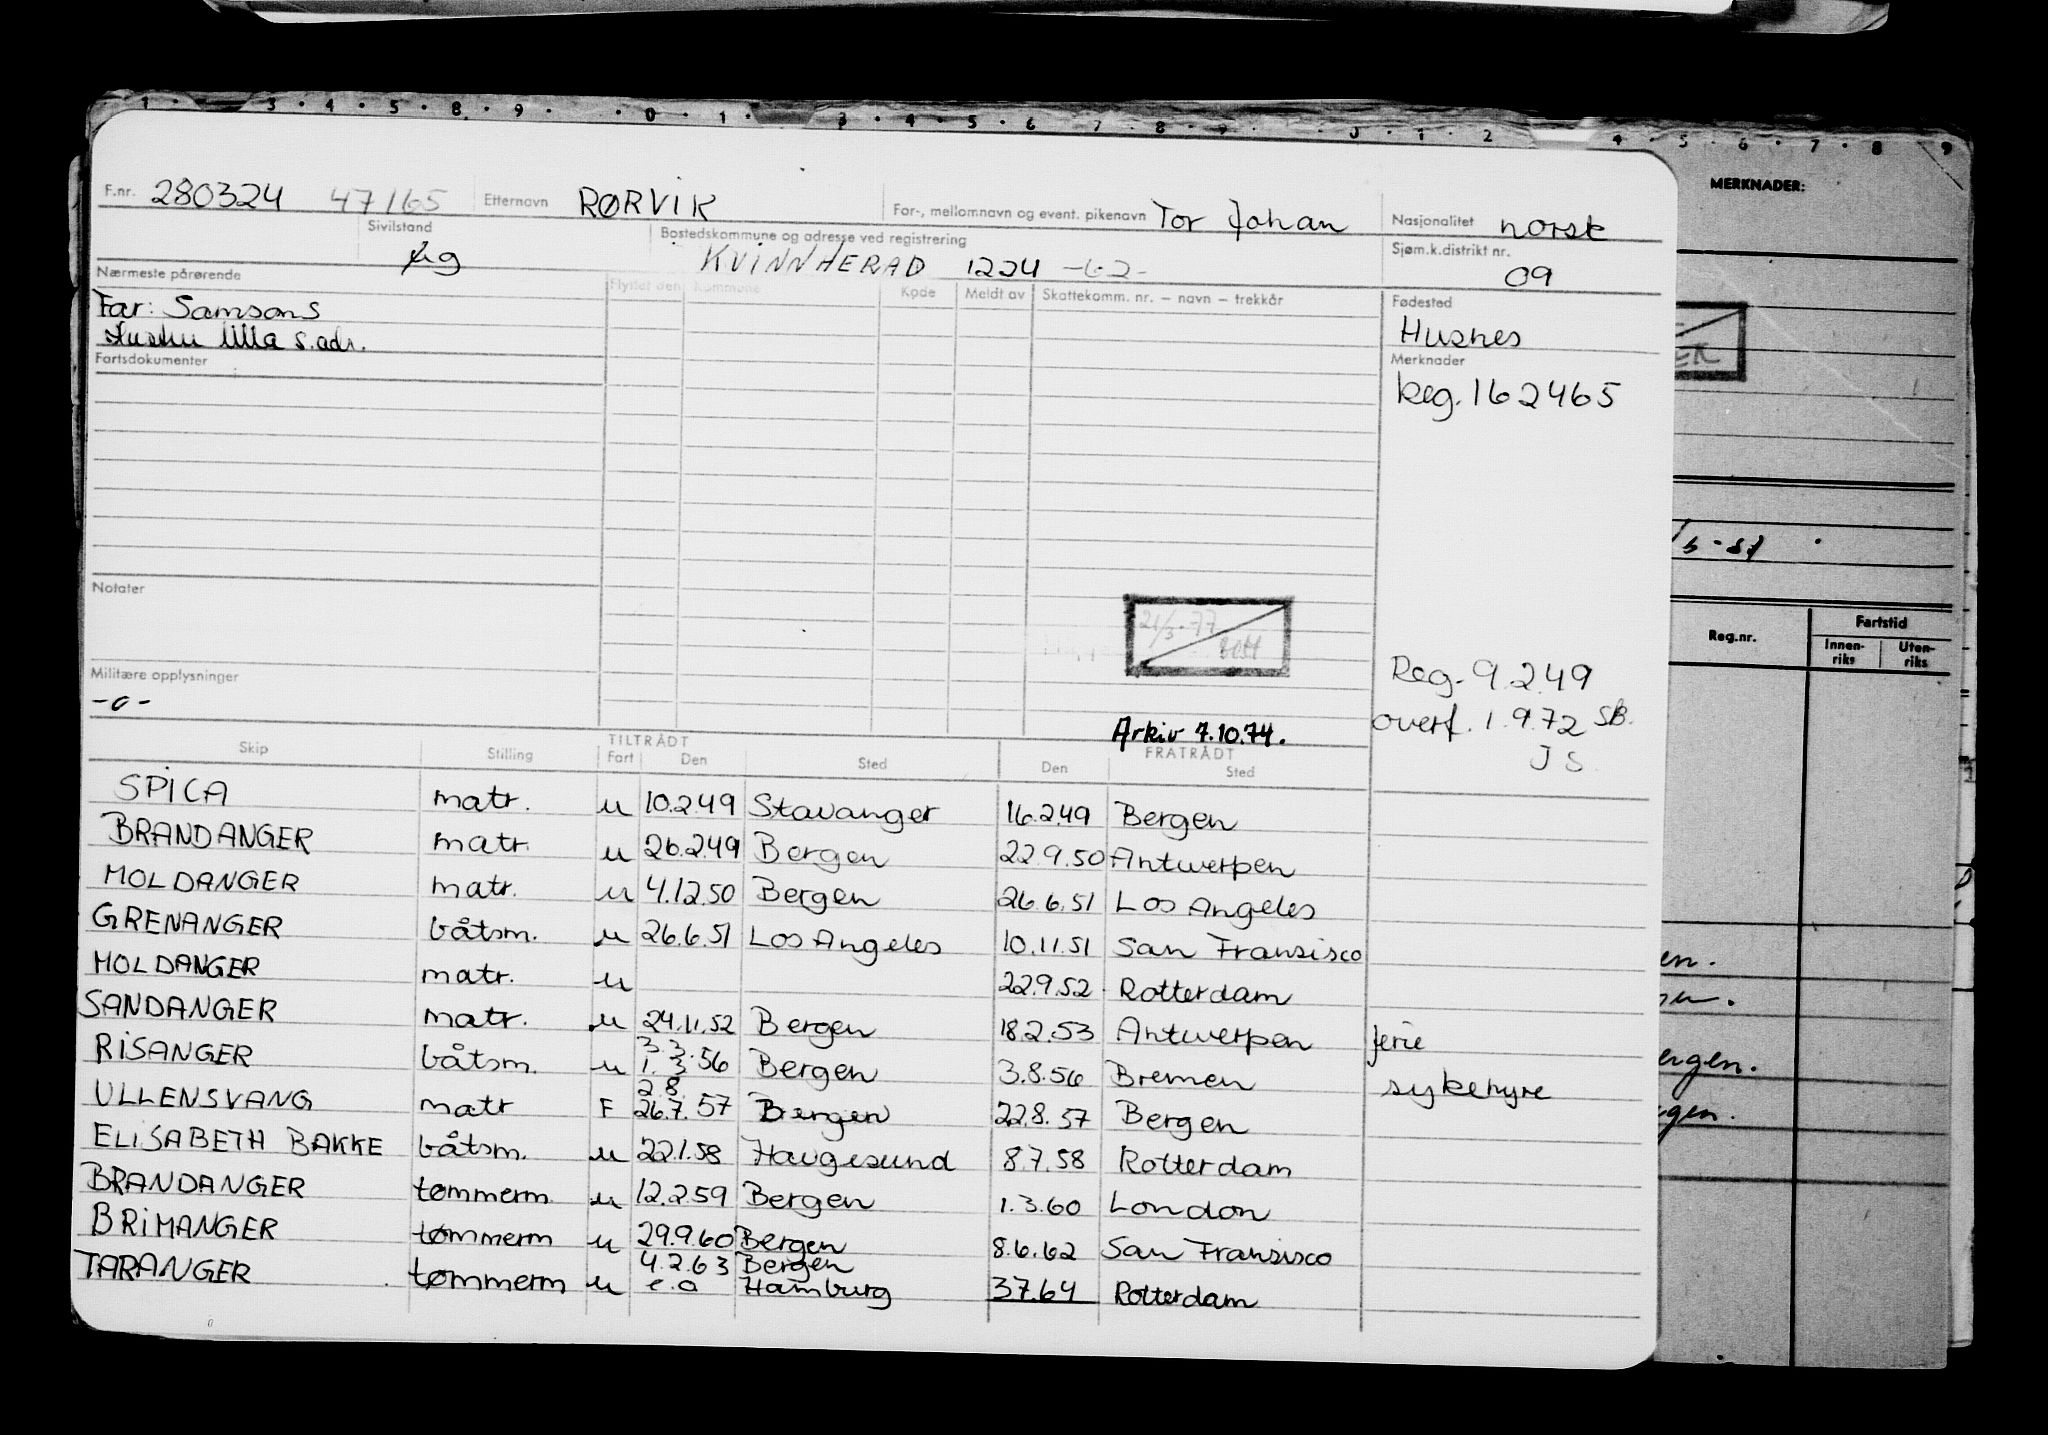 1 · 3 · 4 · 5 · 8 · 9 · 0 · 1 · 3 · 4 · 5 · 6 · 7 · 8 · 9 · 1 · 2 · 4 · 5 · 6 · 7 · 8 9
MERKNADER:
F.nr. 280324 47165 Etternavn RØRVIK For-, mellomnavn og event. pikenavn Tor Johan Nasjonalitet norsk
Sivilstand g Bostedskommune og adresse ved registrering KVINNHERAD 1224 -62- Sjøm.k.distrikt nr. 09
Nærmeste pårørende Flyttet den Kommune Kode Meldt av Skattekomm. nr. – navn – trekkår Fødested
Far: Samson S Husnes
Hustru Ulla s.adr.
Fartsdokumenter Merknader
Reg. 162465
Notater
21/3-77
Militære opplysninger Reg. 9.2.49
-o- overf. 1.9.72 SB.
Arkiv 7.10.74. JS
Reg.nr. Fartstid
Innen-riks Uten-riks
TILTRÅDT FRATRÅDT
Skip Stilling Fart Den Sted Den Sted
SPICA matr. u 10.2.49 Stavanger 16.2.49 Bergen
BRANDANGER matr. u 26.2.49 Bergen 22.9.50 Antwerpen
MOLDANGER matr. u 4.12.50 Bergen 26.6.51 Los Angeles
GRENANGER båtsm. u 26.6.51 Los Angeles 10.11.51 San Fransisco
MOLDANGER matr. u 22.9.52 Rotterdam
SANDANGER matr. u 24.11.52 Bergen 18.2.53 Antwerpen ferie
3.3.
RISANGER båtsm. u 1.3.56 Bergen 3.8.56 Bremen sykehyre
2.8.
ULLENSVANG matr F 26.7.57 Bergen 22.8.57 Bergen
ELISABETH BAKKE båtsm. u 22.1.58 Haugesund 8.7.58 Rotterdam
BRANDANGER tømmerm. u 12.2.59 Bergen 1.3.60 London
BRIMANGER tømmerm u 29.9.60 Bergen 8.6.62 San Fransisco
4.2.63 Bergen
TARANGER tømmerm u e.a Hamburg 3.7.64 Rotterdam
en.
ergen.
gen.